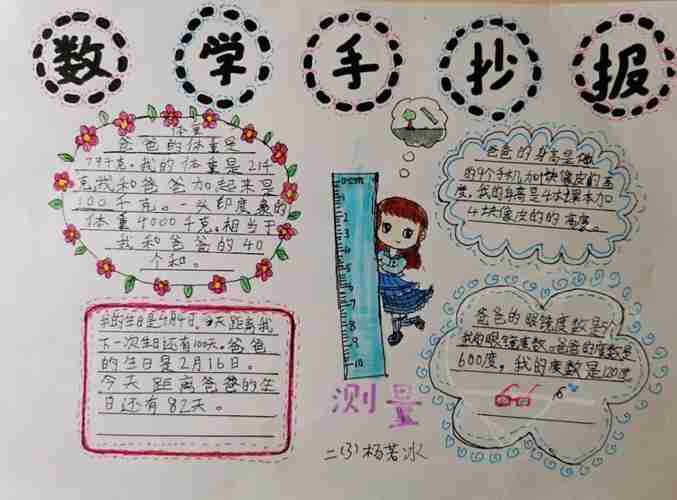 数学手抄报
体重
爸爸的体重是
79千克。我的体重是21千
克我和爸爸加起来是
100千克。一头印度象的
体重4000千克。相当于
我和爸爸的40
个和。
爸爸的身高是
的9个手机加1块像皮的高
度,我的身高是4本课本加
4块像皮的的高度。
0cm
1
2
3
4
5
6
7
8
9
10
我的生日是4月4日。今天距离我
下一次生日还有100天。爸爸
的生日是2月16日。
今天距离爸爸的生
日还有82天。
爸爸的眼镜度数是
我的眼镜度数。爸爸的度数是
600度,我的度数是120度
测量
二(3)杨若冰